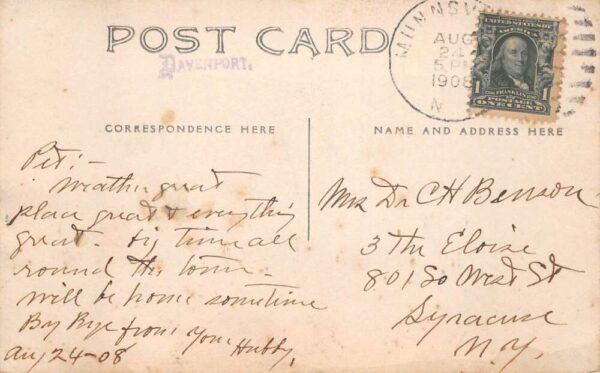 POST CARD
DAVENPORT.
MUNNSV
AUG
24
5 P
1908
N
UNITED STATES OF
FRANKLIN
1 POSTAGE 1
ONE CENT
CORRESPONDENCE HERE
NAME AND ADDRESS HERE
Pet:-
Weather great
place great & everything
great. big time all
round the town -
will be home sometime
By Bye from Your Hubby,
Aug 24-08
Mrs Dr CH Benson
3 The Eloise
801 So West St
Syracuse
N.Y.